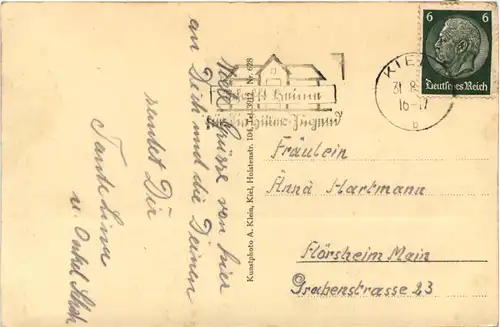 Viele Grüsse von hier
an Dich und die Deinen
sendet Dir
Tante Lina
u. Onkel
Kunstphoto A. Klein, Kiel, Holstenstr. 104, Tel. 3011 Nr. 628
Heime
für die Hitler-Jugend
KIEL
31. 8.
16-17
b
6 6
Deutsches Reich
Fräulein
Anna Hartmann
Flörsheim Main
Grabenstrasse 23